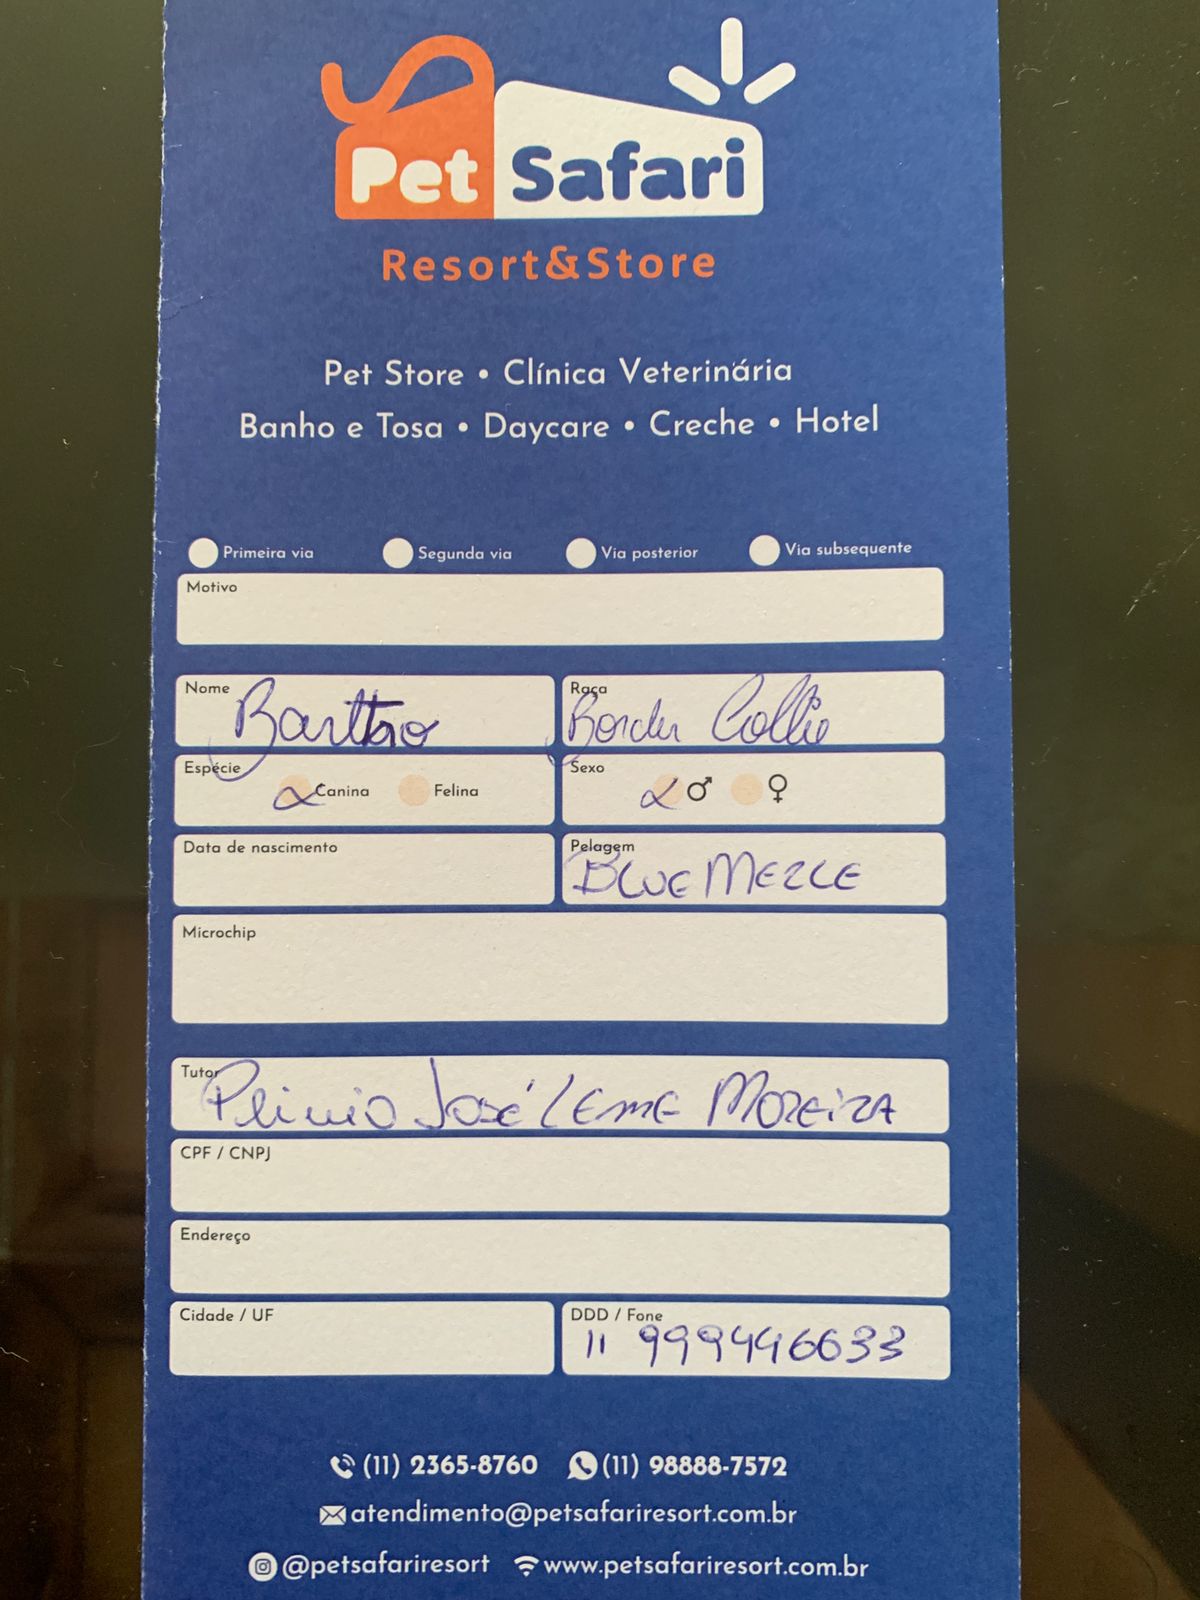 Pet Safari
Resort&Store
Pet Store • Clínica Veterinária
Banho e Tosa • Daycare • Creche • Hotel
Primeira via Segunda via Via posterior Via subsequente
Motivo
Nome Raça
Border Collie
Espécie Sexo
Canina Felina ♂ ♀
Data de nascimento Pelagem
BLUE MERLE
Microchip
Tutor
Plinio José Leme Moreira
CPF / CNPJ
Endereço
Cidade / UF DDD / Fone
11 999446633
(11) 2365-8760 (11) 98888-7572
atendimento@petsafariresort.com.br
@petsafariresort www.petsafariresort.com.br